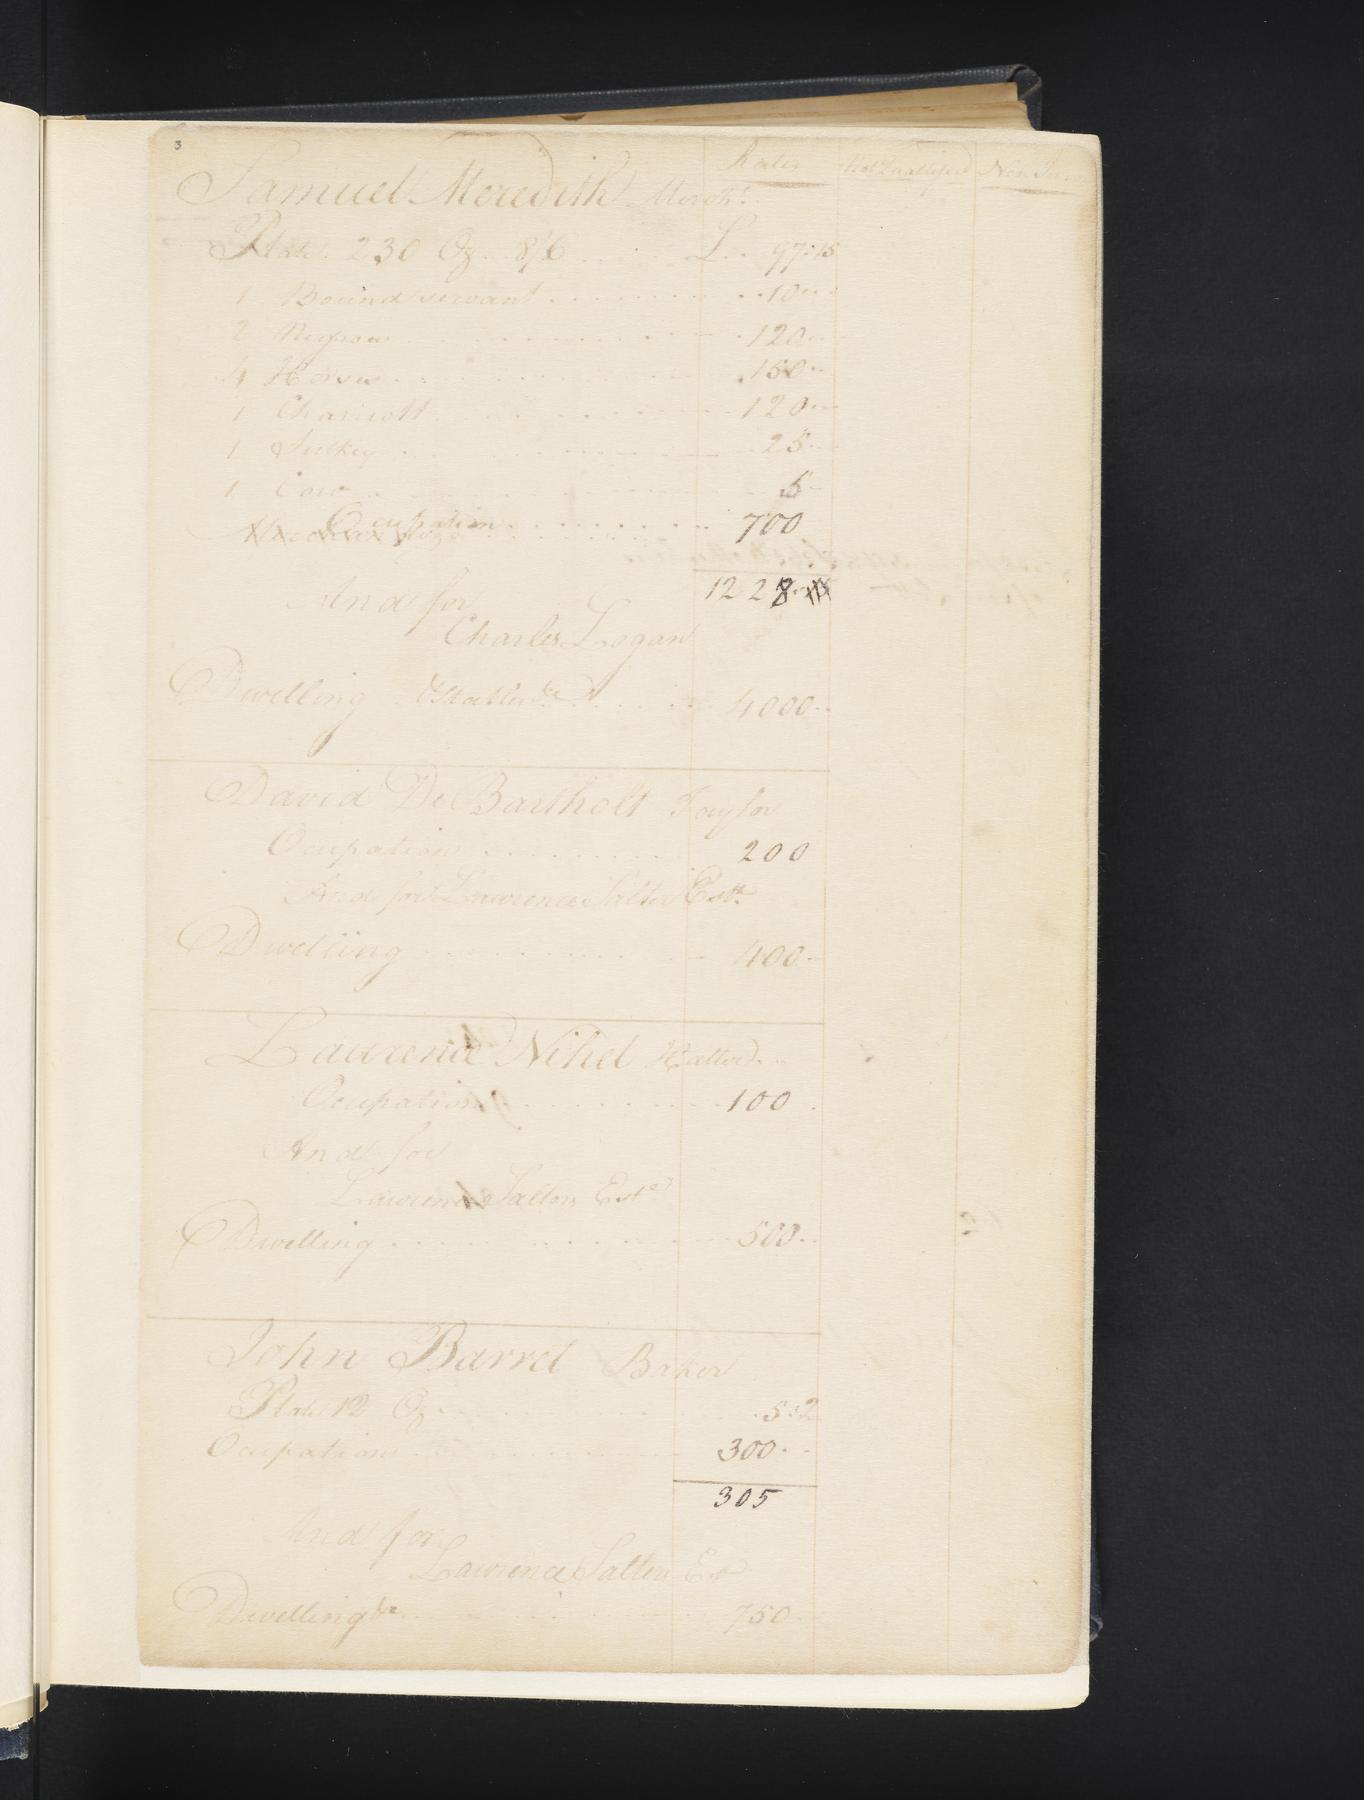 3
Rates Not Quallified Non Jur
Samuel Meredith Mercht.
Plate 230 Oz 8/6 L 97:15
1 Bound servant 10
2 Negroes 120
4 Horses 150
1 Charriott 120
1 Sulkey 25
1 Cow 5
Ocupation 700
1227
And for
Charles Logan
Dwelling & Stables &c 4000
David De Bartholt Taylor
Ocupation 200
And for Lawrence Salter Estt.
Dwelling 400
Lawrence Nihel Hatter
Ocupation 100
And for
Lawrence Salters Este
Dwelling 500
John Barrel Baker
Plate 12 Oz 5:2
Ocupation 300
305
And for
Lawrence Salters Est
Dwelling &c 750